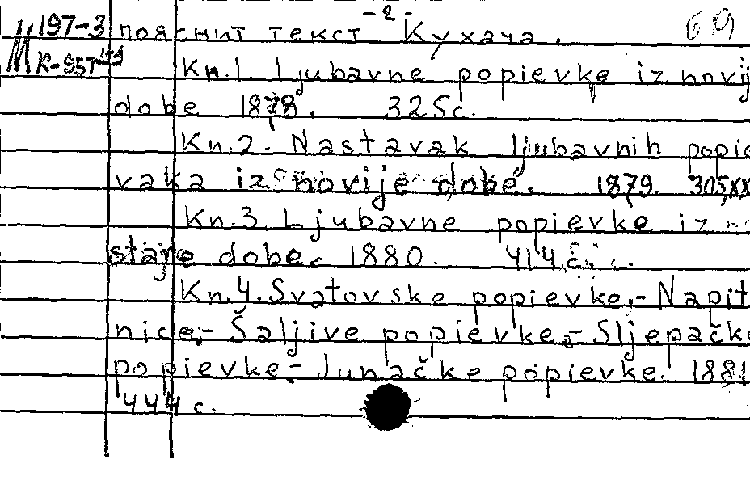 -2-
М 197-3 пояснит текст Кухача.
К-957
Кн.1 Ljubavne popievke iz novij
dobe 1878. 325с.
Kn.2. Nastavak ljubavnih popie
vaka iz novije dobe. 1879. 305,XX
Kn.3. Ljubavne popievke iz
starje dobe. 1880. 414 с.
Kn.4. Svatovske popievke.- Napit
nice.- Šaljive popievke.- Sljepačke
popievke.- Junačke popievke. 1881
444 с.